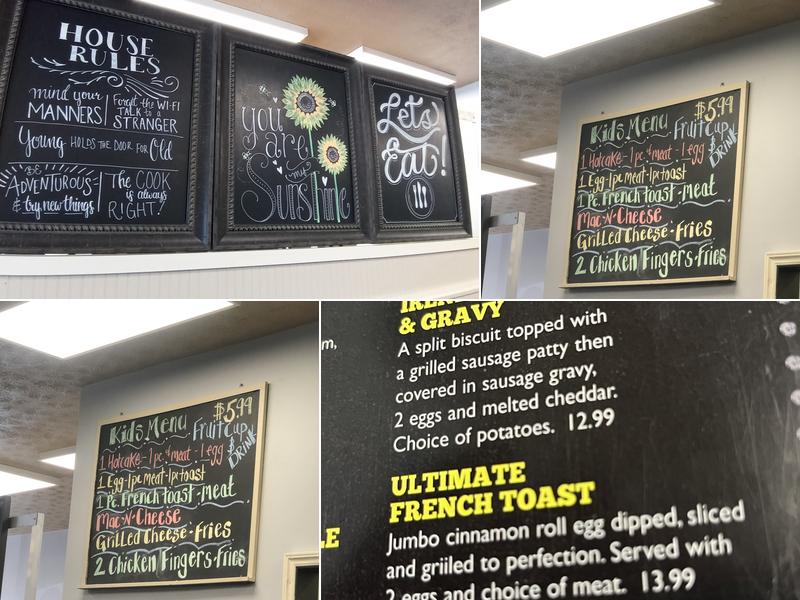 HOUSE
RULES
mind your
MANNERS
Forget the WI-FI
TALK to a
STRANGER
Young HOLDS THE DOOR FOR Old
BE
ADVENTUROUS-
& try new things
The COOK
is always
RIGHT!
you
are
my
Sunshine
Lets
Eat!
Kids Menu
$5.99
Fruit Cup
& DRINK
1 Hotcake - 1 pc. meat - 1 egg
1 Egg-1pc meat-1pc toast
1 Pc. French toast - meat
Mac-N-Cheese
Grilled Cheese - Fries
2 Chicken Fingers-Fries
Kids Menu
$5.99
Fruit Cup
& DRINK
1 Hotcake - 1 pc. meat - 1 egg
1 Egg-1pc meat-1pc toast
1 Pc. French toast - meat
Mac-N-Cheese
Grilled Cheese - Fries
2 Chicken Fingers-Fries
& GRAVY
A split biscuit topped with
a grilled sausage patty then
covered in sausage gravy,
2 eggs and melted cheddar.
Choice of potatoes. 12.99
ULTIMATE
FRENCH TOAST
Jumbo cinnamon roll egg dipped, sliced
and griiled to perfection. Served with
2 eggs and choice of meat. 13.99